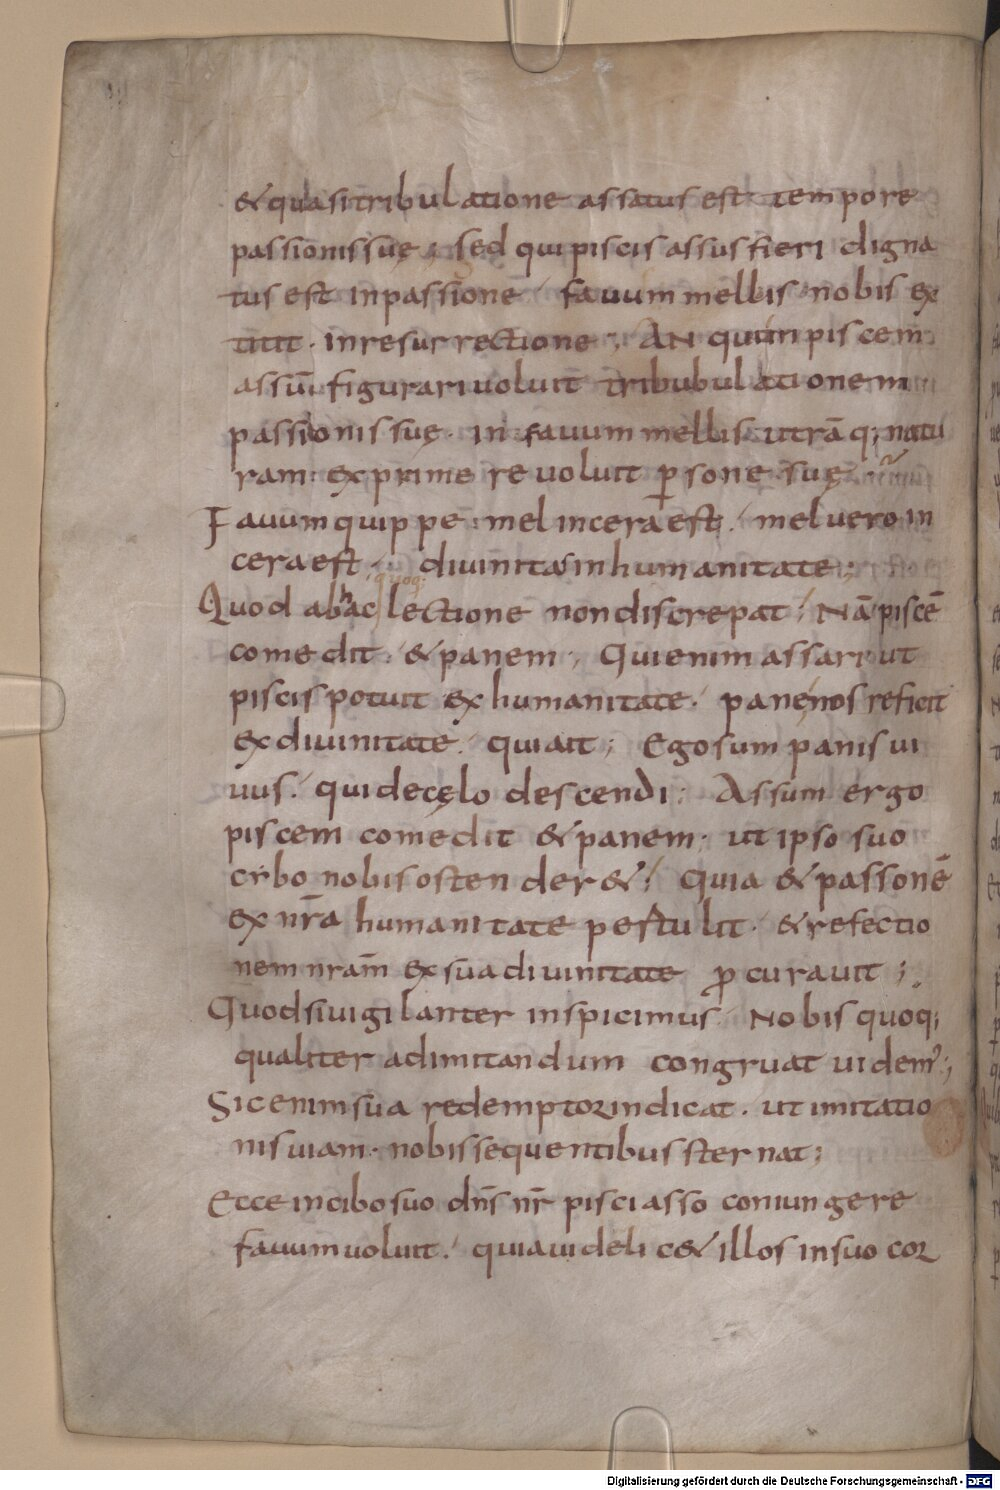 &quasitribulatione assatus est tempore
passionissuę; sed quipiscis assus fieri digna
tus est inpassione / fauum mellis nobis ex
titit · inresurrectione; AN quiin piscem
assū figurari uoluit tribubulationem
passionis suę · in fauum mellis utrāq; natu
ram exprimere uoluit ꝑsone suę ·
Fauum quippe mel in cera est / mel uero in
cera est / diuinitas in humanitate;
quoq;
Quod ab hac lectione non discrepat / Nā piscē
comedit · & panem; Qui enim assari ut
piscis potuit ex humanitate / pane nos reficit
ex diuinitate · qui ait; Ego sum panis ui
uus / qui de cęlo descendi; Assum ergo
piscem comedit & panem · ut ipso suo
cybo nobis ostender& / quia & passonē
ex nr̄a humanitate pestulit · & refectio
nem nram̄ ex sua diuinitate ꝓcurauit;
Quod si uigilanter inspicimus / Nobis quoq;
qualiter ad imitandum congruat uidem᾽;
Sic enim sua redemptor indicat · ut imitatio
nis uiam · nobis sequentibus sternat;
Ecce in cibo suo dn̄s nr̄ pisci asso coniungere
fauum uoluit / quia uidelic& illos in suo cor
Digitalisierung gefördert durch die Deutsche Forschungsgemeinschaft - DFG